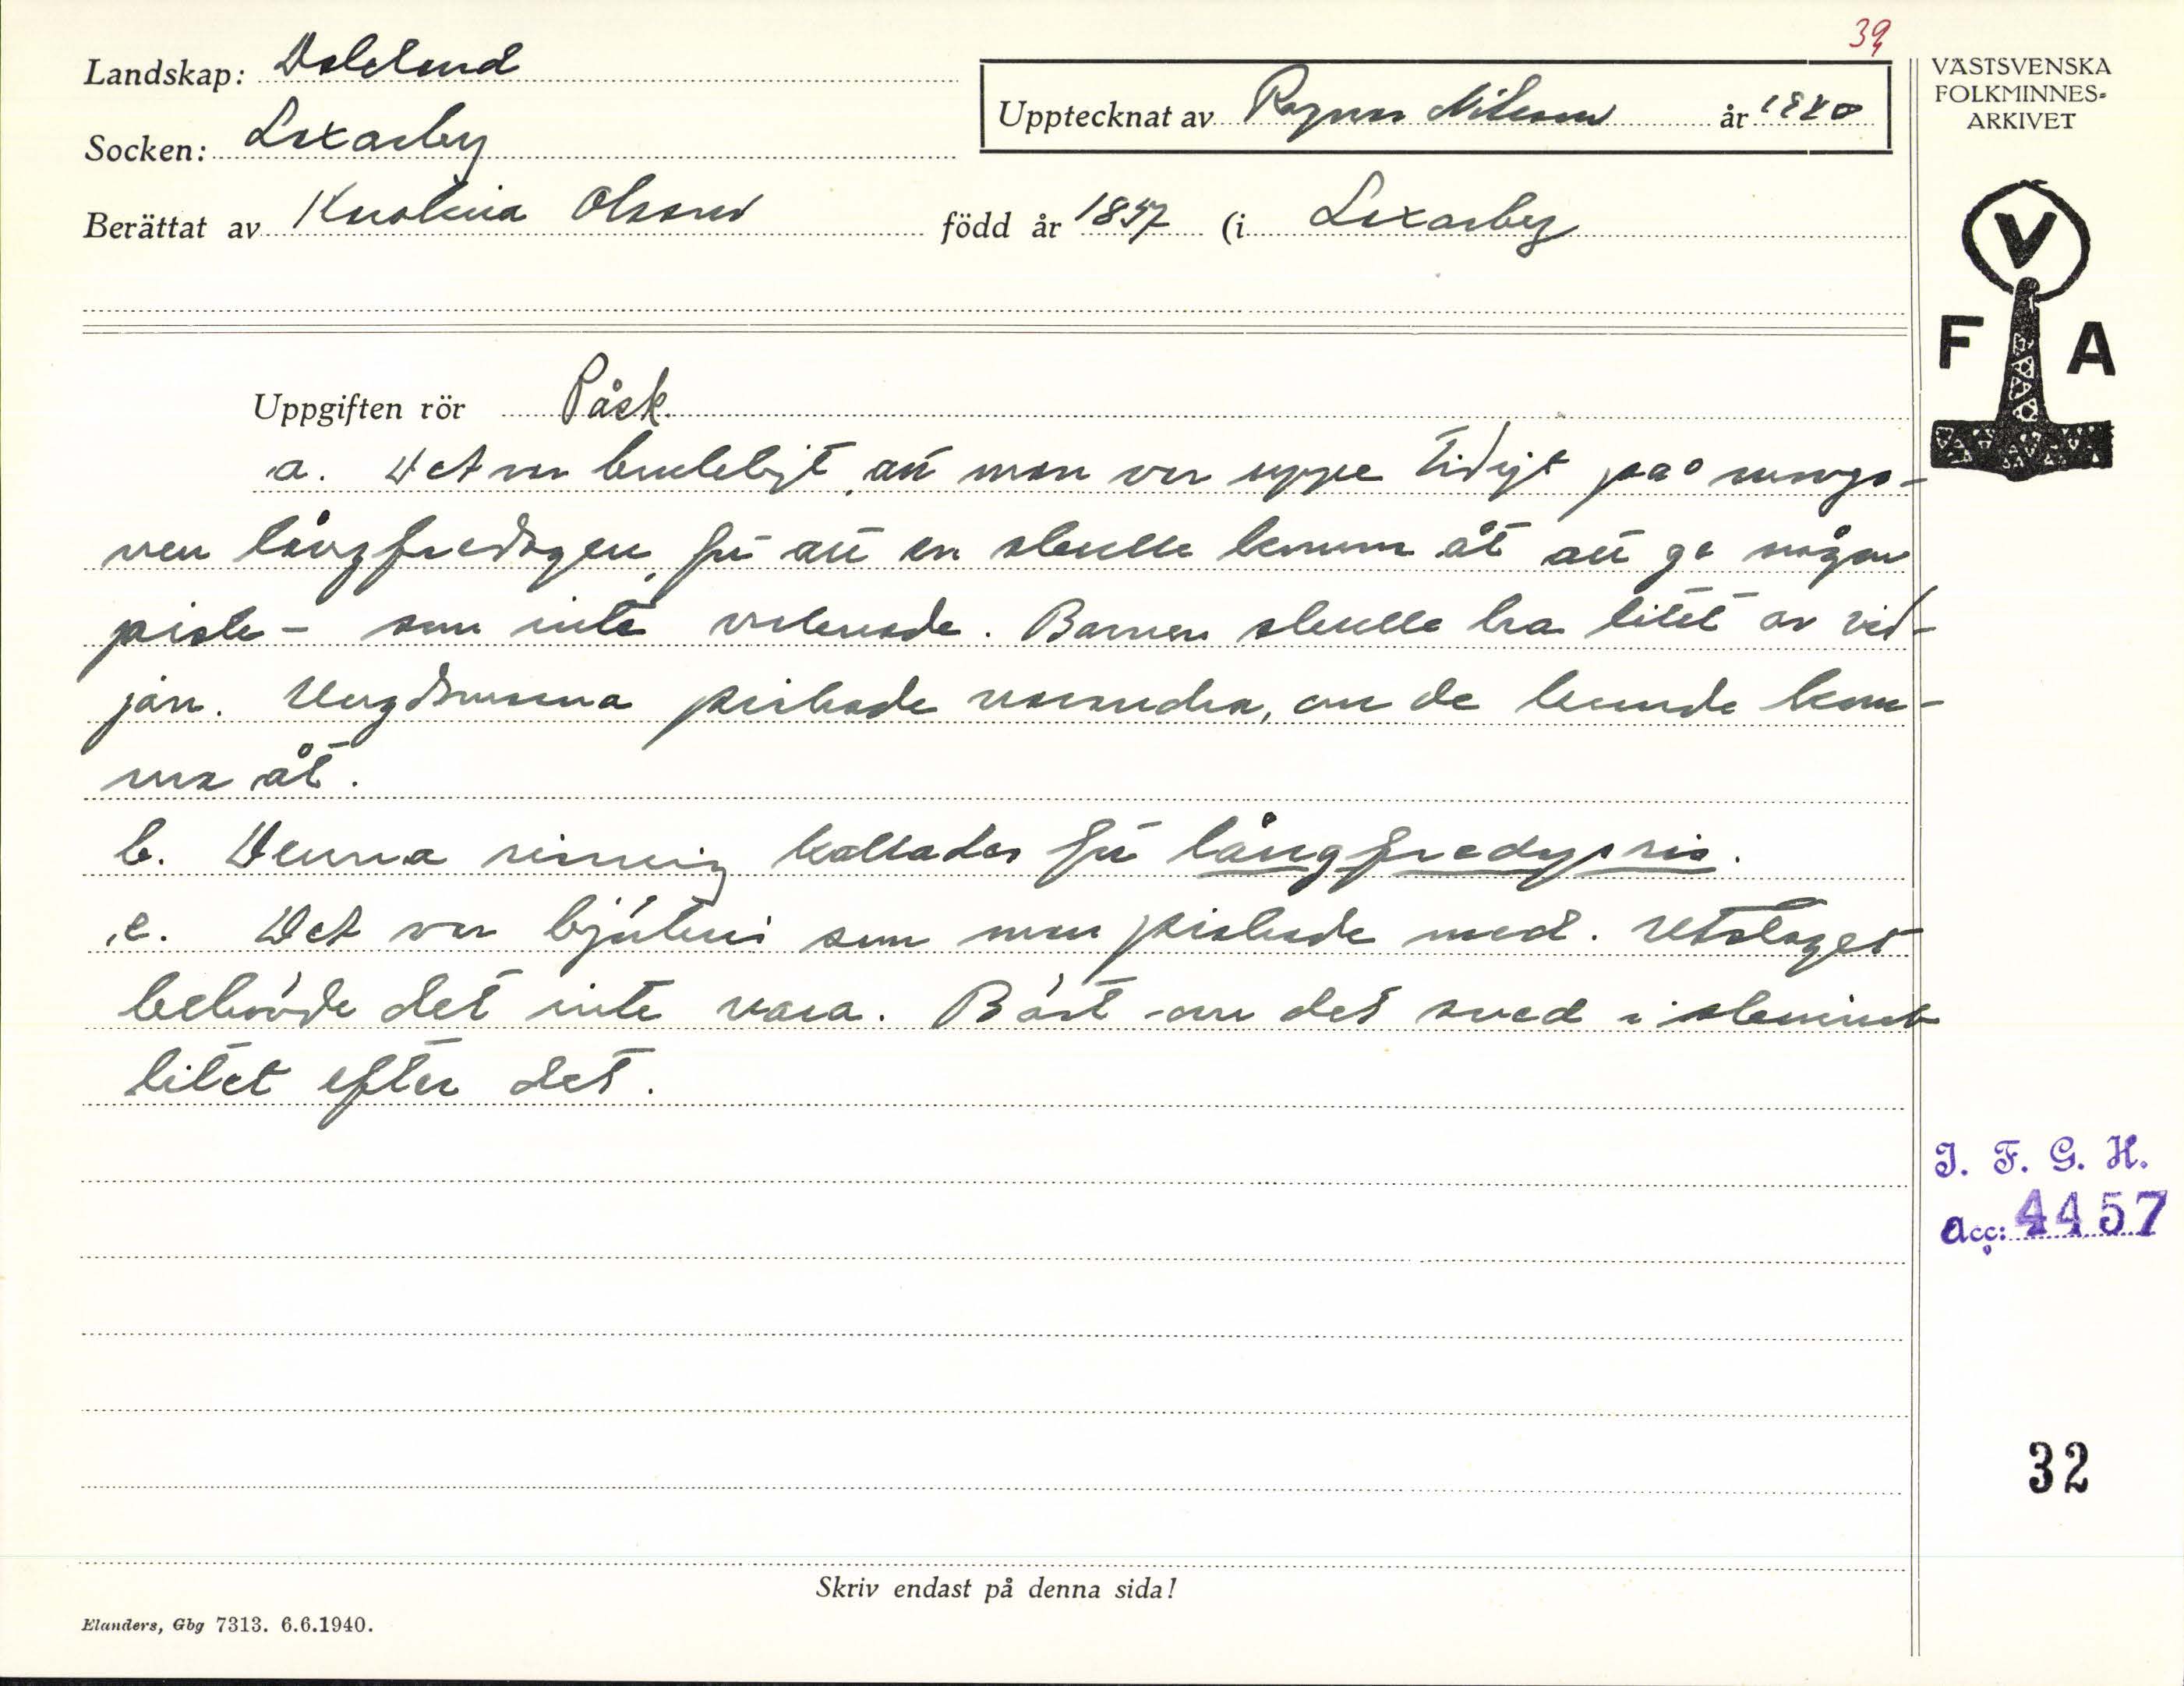 39
Landskap: Dalsland
Upptecknat av Ragnar Nilsson år 1940
Socken: Laxarby
Berättat av Karolina Olsson född år 1857 (i Laxarby
VÄSTSVENSKA
FOLKMINNES-
ARKIVET
V
F A
Uppgiften rör Påsk.
a. Det var brukligt, att man var uppe tidigt på morgo-
nen långfredagen, för att en skulle komma åt att ge någon
piska - som inte vaknade. Barnen skulle ha litet av vid-
jan. Ungdomarna piskade varandra, om de kunde kom-
ma åt.
b. Denna risning kallades för långfredagsris.
c. Det var björkris som man piskade med. Utslaget
behövde det inte vara. Bäst om det sved i skinnet
litet efter det.
I. F. G. H.
Acc: 4457
32
Skriv endast på denna sida!
Elanders, Gbg 7313. 6.6.1940.